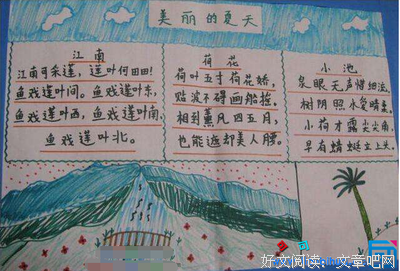 美丽的夏天
江南
江南可采莲，莲叶何田田！
鱼戏莲叶间。鱼戏莲叶东，
鱼戏莲叶西，鱼戏莲叶南，
鱼戏莲叶北。
荷花
荷叶五寸荷花娇，
贴波不碍画船摇，
相到薰风四五月，
也能遮却美人腰。
小池
泉眼无声惜细流，
树阴照水爱晴柔，
小荷才露尖尖角，
早有蜻蜓立上头。
好文阅读：文章吧网